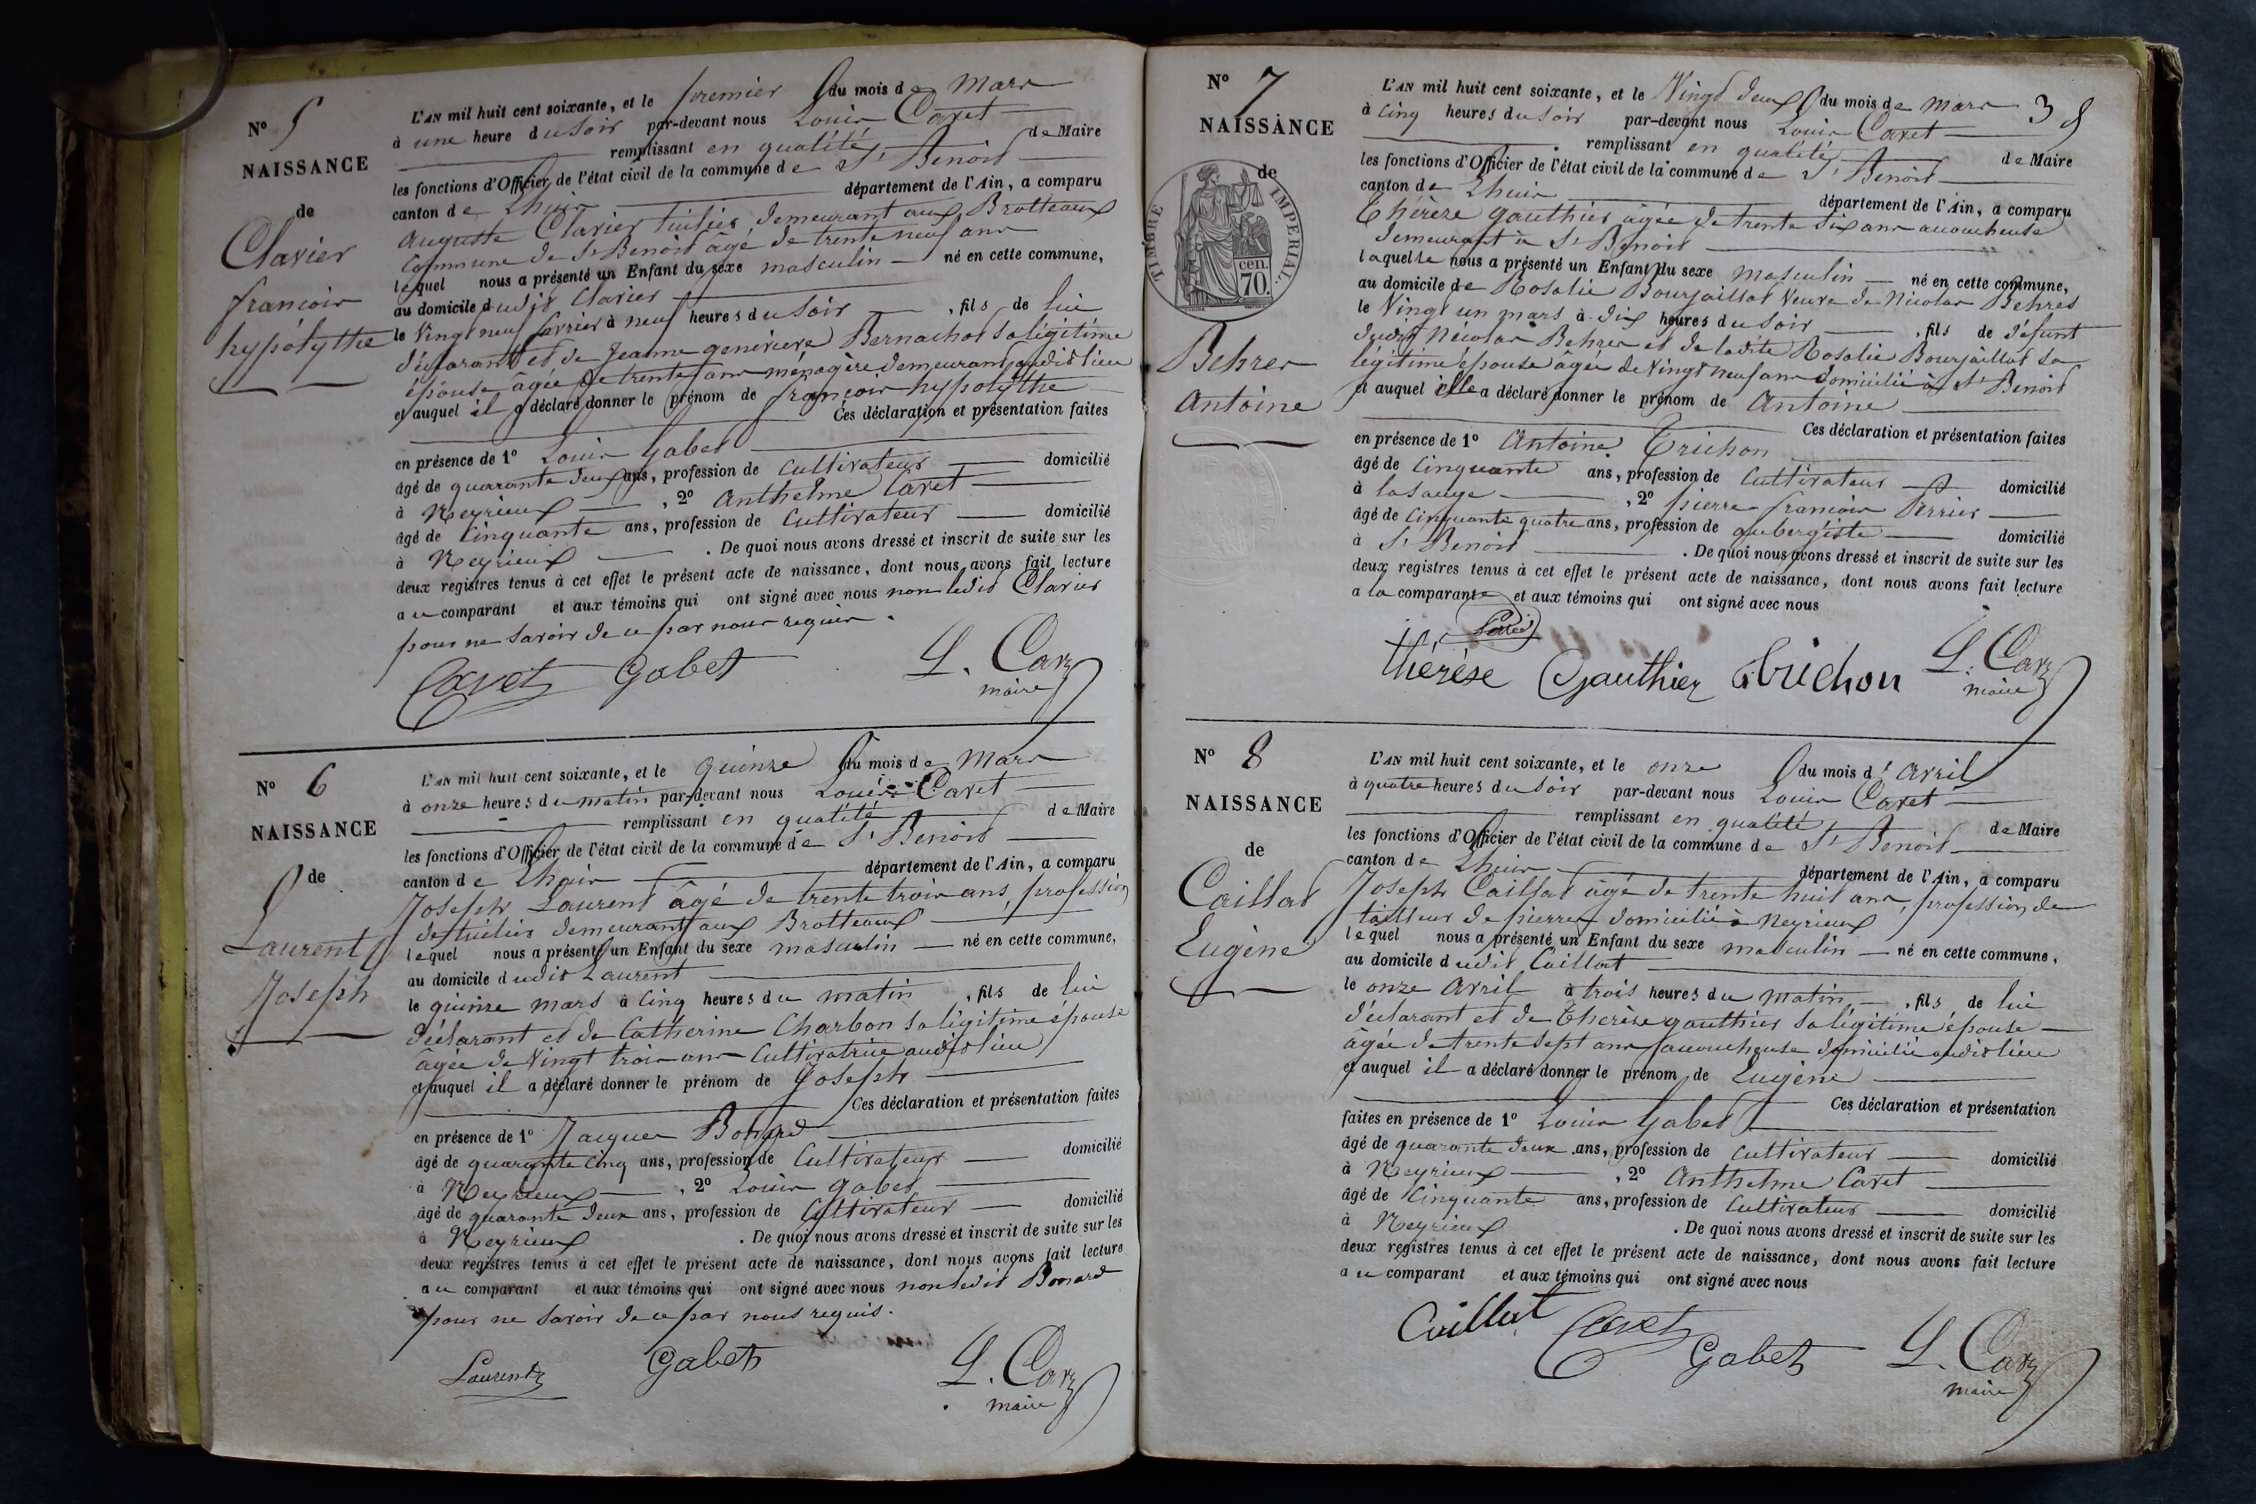 N° 5
NAISSANCE
de
Clavier
françois
hypolythe
L'AN mil huit cent soixante, et le premier du mois de Mars
à une heure du Soir par-devant nous Louis Cavet
remplissant en qualité de Maire
les fonctions d'Officier de l'état civil de la commune de St Benoit
canton de Lhuis département de l'Ain, a comparu
Auguste Clavier tuilier demeurant aux Brotteaux
Commune de St Benoit âgé de trente neuf ans
lequel nous a présenté un Enfant du sexe masculin né en cette commune,
au domicile dudit Clavier
le Vingt neuf fevrier à neuf heures du Soir, fils de lui
déclarant et de Jeanne genevieve Bernachot Sa légitime
épouse âgée de trente ans ménagère demeurant audit lieu
et auquel il a déclaré donner le prénom de françois hypolythe
Ces déclaration et présentation faites
en présence de 1° Louis Gabet
âgé de quarante deux ans, profession de Cultivateur domicilié
à Neyrieux, 2° Anthelme Cavet
âgé de Cinquante ans, profession de Cultivateur domicilié
à Neyrieux. De quoi nous avons dressé et inscrit de suite sur les
deux registres tenus à cet effet le présent acte de naissance, dont nous avons fait lecture
au comparant et aux témoins qui ont signé avec nous non ledit Clavier
pour ne Savoir de ce par nous requis.
Cavet Gabet L. Cavet
maire
N° 6
NAISSANCE
de
Laurent
Joseph
L'AN mil huit cent soixante, et le quinze du mois de Mars
à onze heures du matin par-devant nous Louis Cavet
remplissant en qualité de Maire
les fonctions d'Officier de l'état civil de la commune de St Benoit
canton de Lhuis département de l'Ain, a comparu
Joseph Laurent âgé de trente trois ans, profession
de tuilier demeurant aux Brotteaux
lequel nous a présenté un Enfant du sexe masculin né en cette commune,
au domicile dudit Laurent
le quinze mars à Cinq heures du matin, fils de lui
déclarant et de Catherine Charbon Sa légitime épouse
âgée de Vingt trois ans Cultivatrice audit lieu
et auquel il a déclaré donner le prénom de Joseph
Ces déclaration et présentation faites
en présence de 1° Jacques Bonard
âgé de quarante Cinq ans, profession de Cultivateur domicilié
à Neyrieux, 2° Louis Gabet
âgé de quarante deux ans, profession de Cultivateur domicilié
à Neyrieux. De quoi nous avons dressé et inscrit de suite sur les
deux registres tenus à cet effet le présent acte de naissance, dont nous avons fait lecture
au comparant et aux témoins qui ont signé avec nous non ledit Bonard
pour ne Savoir de ce par nous requis.
Laurent Gabet L. Cavet
maire
N° 7
NAISSANCE
de
TIMBRE IMPERIAL
cen.
70.
Behrer
Antoine
3
L'AN mil huit cent soixante, et le Vingt deux du mois de Mars
à Cinq heures du Soir par-devant nous Louis Cavet
remplissant en qualité de Maire
les fonctions d'Officier de l'état civil de la commune de St Benoit
canton de Lhuis département de l'Ain, a comparu
Thérèze gauthier âgée de trente six ans accoucheuse
demeurant à St Benoit
laquelle nous a présenté un Enfant du sexe masculin né en cette commune,
au domicile de Rosalie Bourjaillat Veuve de Nicolas Behrer
le Vingt un mars à dix heures du Soir, fils de défunt
dudit Nicolas Behrer et de ladite Rosalie Bourjaillat Sa
légitime épouse âgée de Vingt neuf ans domiciliée à St Benoit
et auquel elle a déclaré donner le prénom de Antoine
Ces déclaration et présentation faites
en présence de 1° Antoine Trichon
âgé de Cinquante ans, profession de Cultivateur domicilié
à la Sauge, 2° pierre françois Perrier
âgé de Cinquante quatre ans, profession de aubergiste domicilié
à St Benoit. De quoi nous avons dressé et inscrit de suite sur les
deux registres tenus à cet effet le présent acte de naissance, dont nous avons fait lecture
a la comparante et aux témoins qui ont signé avec nous
thérèse Gauthier trichon L. Cavet
maire
N° 8
NAISSANCE
de
Caillat
Eugène
L'AN mil huit cent soixante, et le onze du mois d'Avril
à quatre heures du Soir par-devant nous Louis Cavet
remplissant en qualité de Maire
les fonctions d'Officier de l'état civil de la commune de St Benoit
canton de Lhuis département de l'Ain, a comparu
Joseph Caillat âgé de trente huit ans, profession de
tailleur de pierres domicilié à Neyrieux
lequel nous a présenté un Enfant du sexe masculin né en cette commune,
au domicile dudit Caillat
le onze Avril à trois heures du matin, fils de lui
déclarant et de Therèse gauthier Sa légitime épouse
âgée de trente sept ans accoucheuse domiciliée audit lieu
et auquel il a déclaré donner le prénom de Eugène
Ces déclaration et présentation
faites en présence de 1° Louis Gabet
âgé de quarante deux ans, profession de Cultivateur domicilié
à Neyrieux, 2° Anthelme Cavet
âgé de Cinquante ans, profession de Cultivateur domicilié
à Neyrieux. De quoi nous avons dressé et inscrit de suite sur les
deux registres tenus à cet effet le présent acte de naissance, dont nous avons fait lecture
au comparant et aux témoins qui ont signé avec nous
Caillat Cavet Gabet L. Cavet
maire